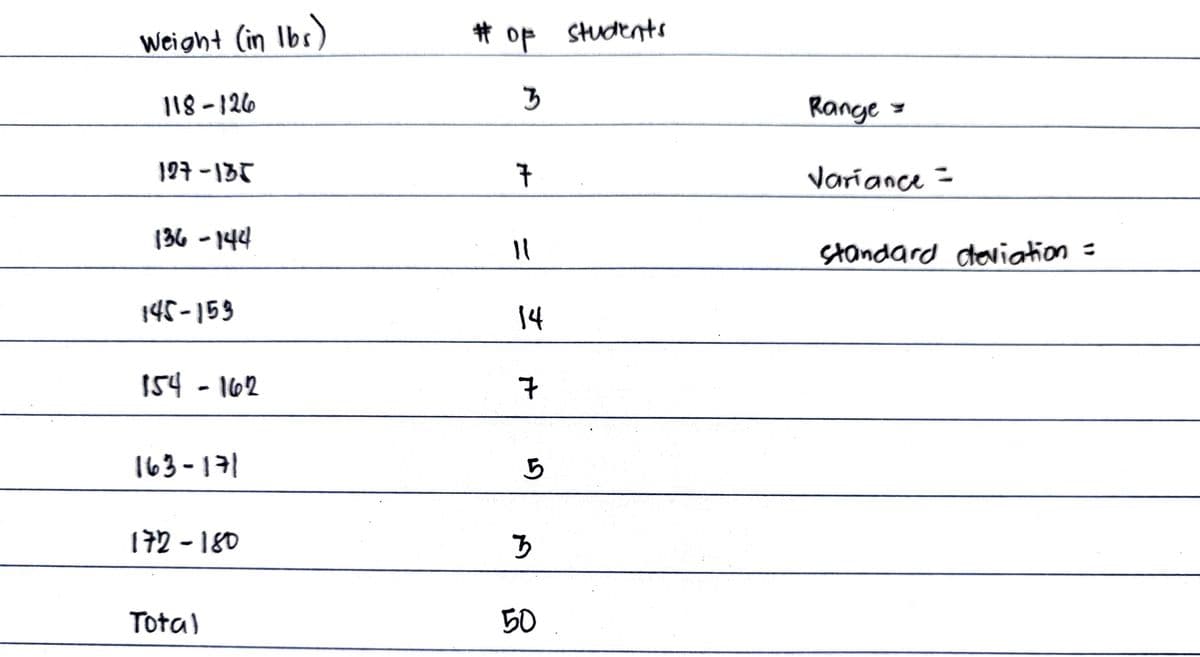 Weight (in lbs) # of students
118-126 3 Range =
127-135 7 Variance =
136-144 11 standard deviation =
145-153 14
154-162 7
163-171 5
172-180 3
Total 50